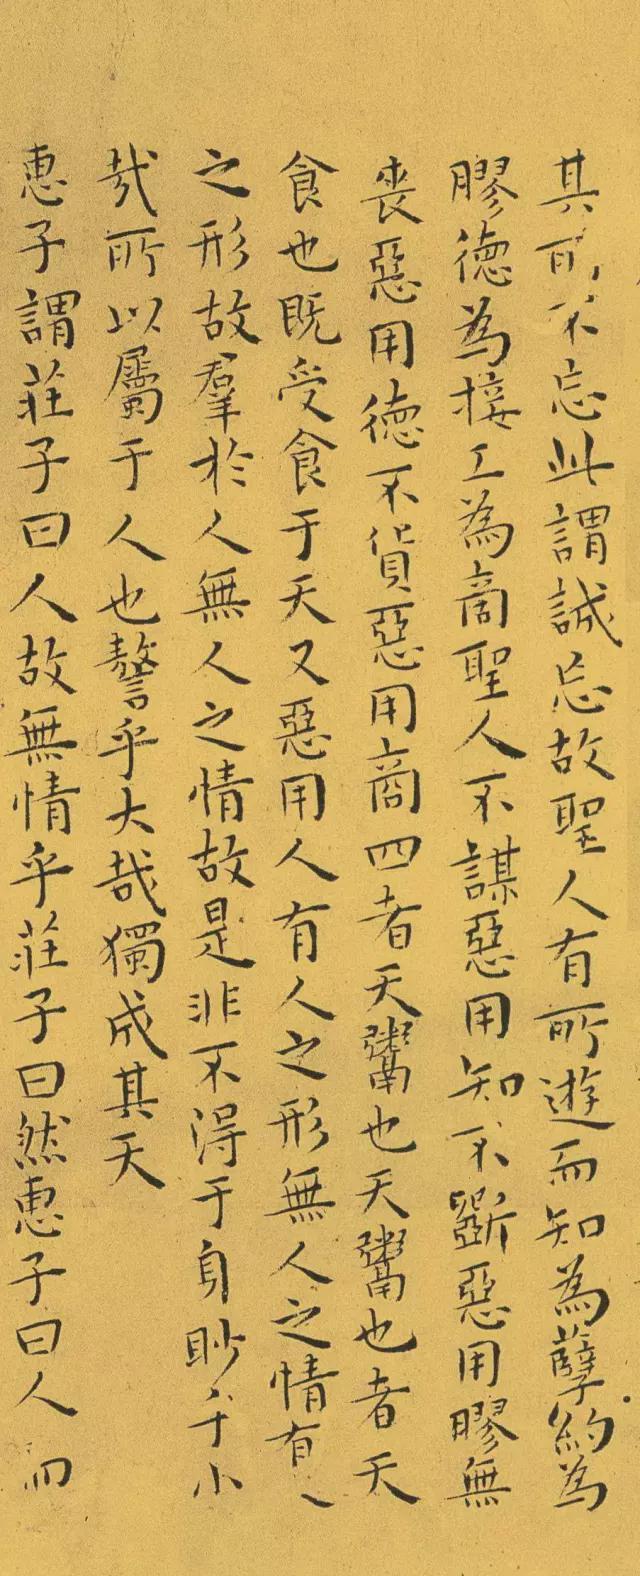 其所不忘此謂誠忘故聖人有所遊而知為孽約為
膠德為接工為商聖人不謀惡用知不斲惡用膠無
喪惡用德不貨惡用商四者天鬻也天鬻也者天
食也既受食于天又惡用人有人之形無人之情有人
之形故羣於人無人之情故是非不得于身眇乎小
哉所以屬于人也謷乎大哉獨成其天
惠子謂莊子曰人故無情乎莊子曰然惠子曰人而